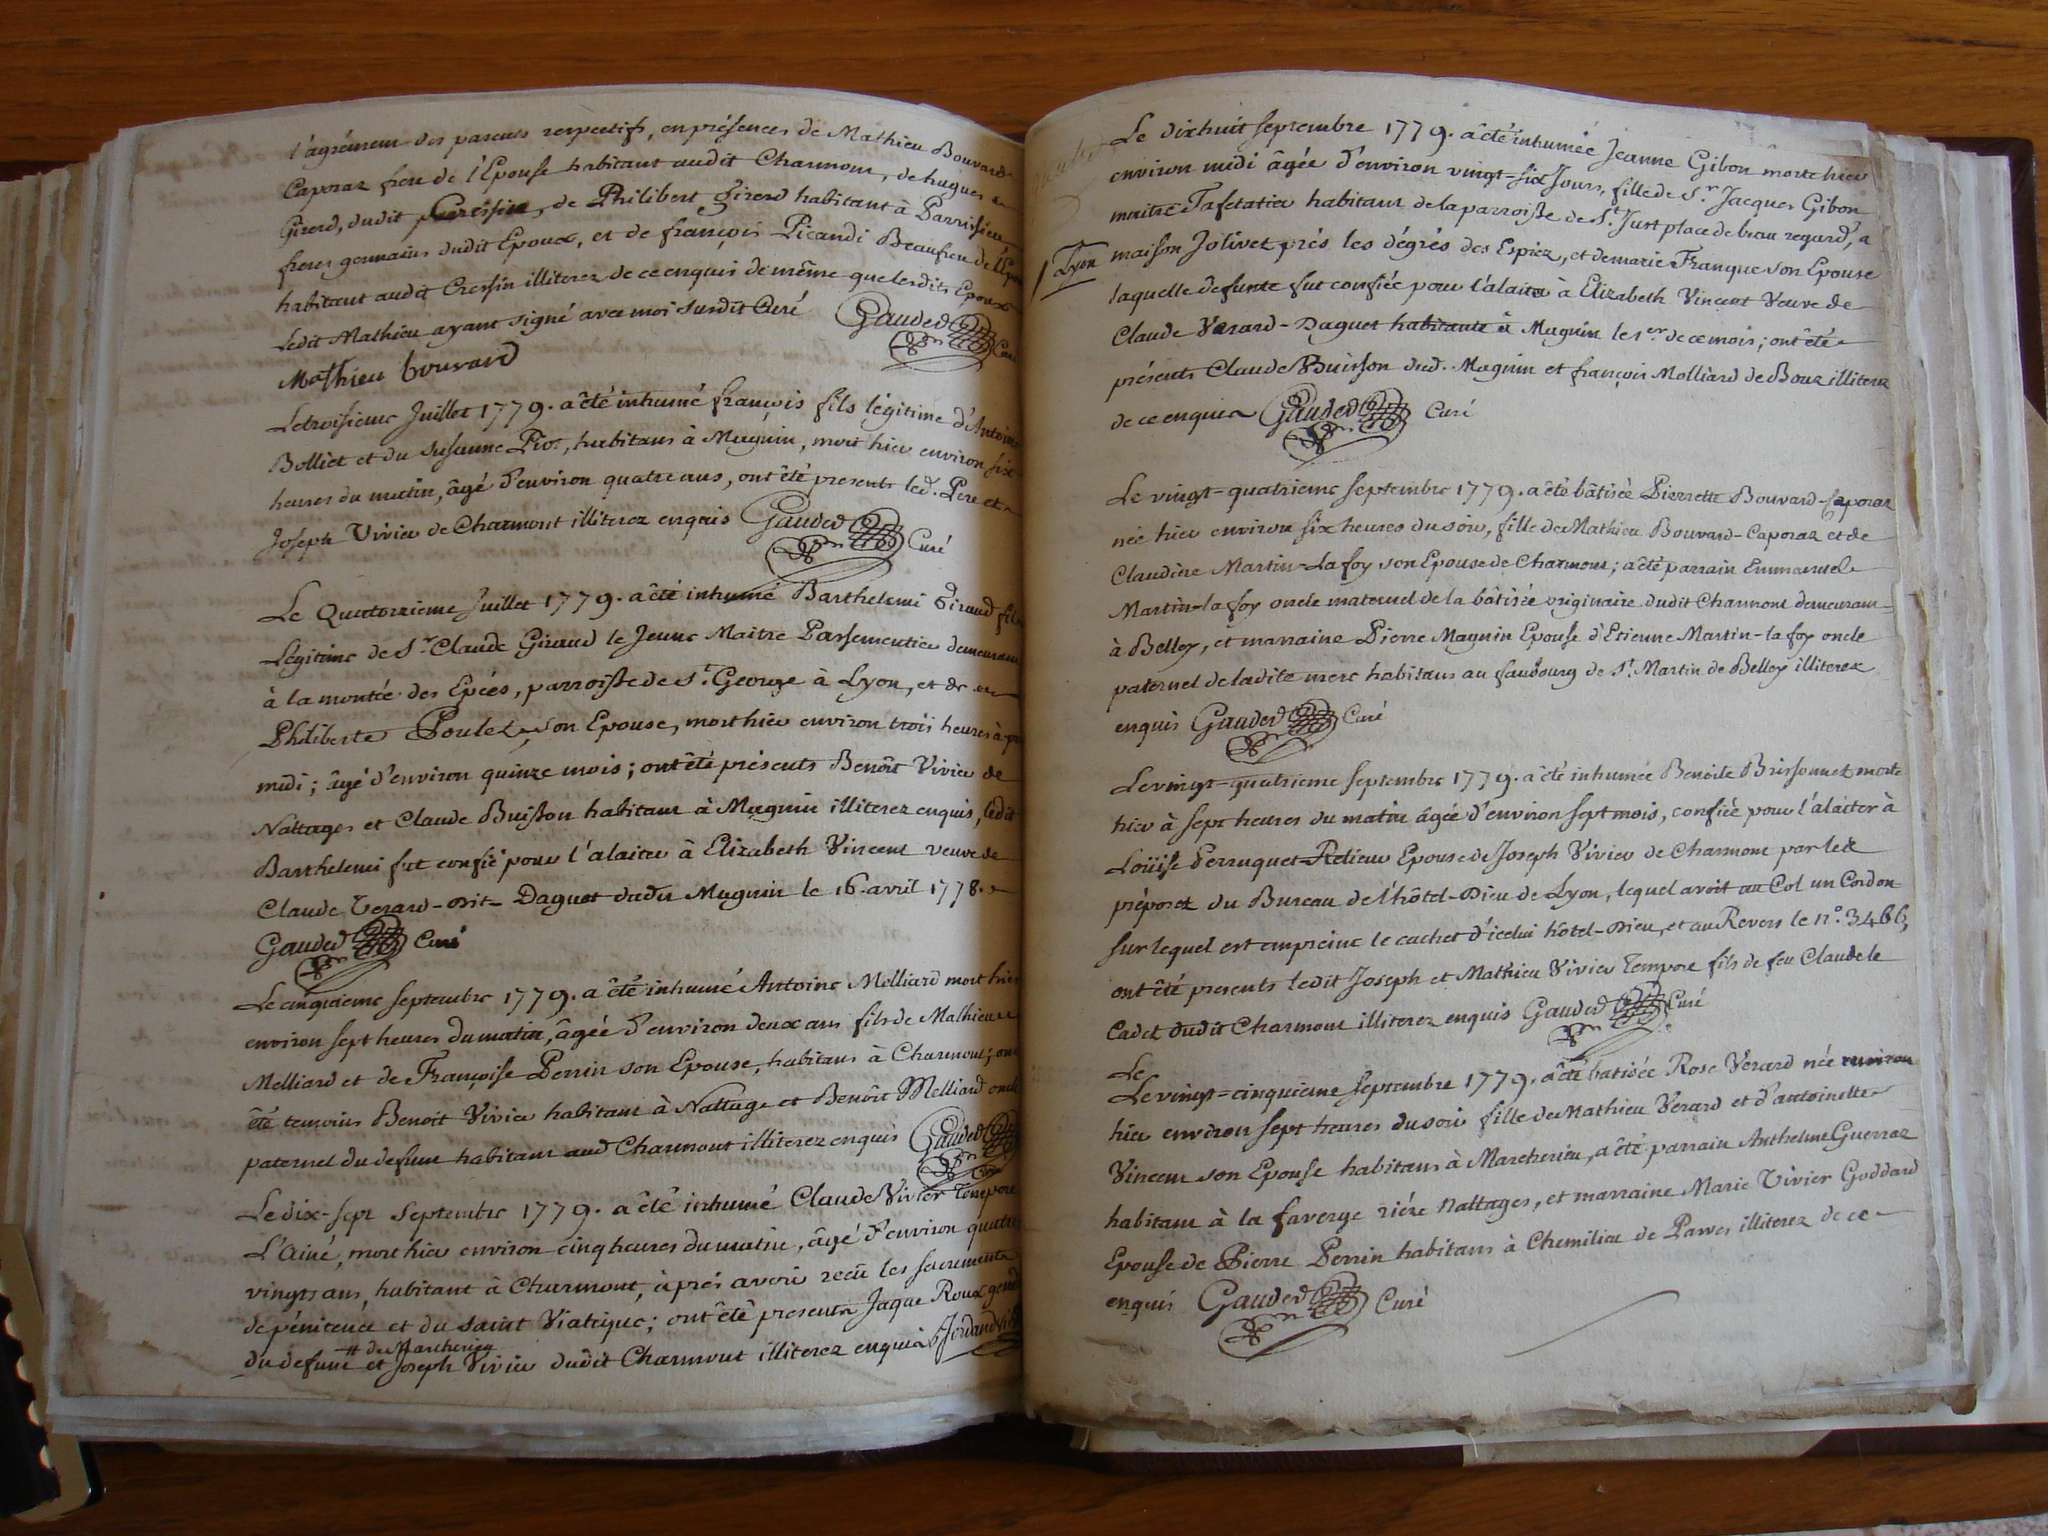 l'agrément des parents respectifs, en présences de Mathieu Bouvard
Caporaz freu de l'Epouse habitant audit Charmont, de hugues
Girerd, dudit de Philibert girerd habitant à Parvissieu,
freres germains dudit Epoux, et de françois Picandi Beaufreu de l'Epou
habitant audit Cressin illiterez de ce enquis de même que lesdits Epoux
Ledit Mathieu ayant signé avec moi susdit Curé Gauded Curé
Mathieu bouvard
Le troisieme Juillet 1779. a êté inhumé françois fils légitime d'Antoine
Bolliet et du Susanne Pio, habitans à Magnin, mort hier environ six
heures du matin, âgé d'environ quatre ans, ont êté presents led. Pere et
Joseph Vivier de Charmont illiterez enquis Gauded Curé
Le Quatorzieme Juillet 1779. a êté inhumé Barthelemi Giraud fils
Légitime de Sr. Claude Giraud le Jeune Maitre Passementier demeurant
à la montée des Epées, parroisse de St. George à Lyon, et de
Philiberte Poulet son Epouse, mort hier environ trois heures à près
midi; âgé d'environ quinze mois; ont êté présents Benoît Vivier de
Nattages et Claude Buisson habitant à Magnin illiterez enquis, ledit
Barthelemi fut confié pour l'alaiter à Elizabeth Vincent veuve de
Claude Verard-dit-Daguet dudit Magnin le 16. avril 1778.
Gauded Curé
Le cinquieme septembre 1779. a êté inhumé Antoine Melliard mort hier
environ sept heures du matin, âgée d'environ deux ans fils de Mathieu
Melliard et de Françoise Perrin son Epouse, habitans à Charmont; ont
êté temoins Benoit Vivier habitant à Nattage et Benoît Melliard oncle
paternel du defunt habitant aud Charmont illiterez enquis Gauded Curé
Le dix-sept septembre 1779. a êté inhumé Claude Vivier Tempore
L'Ainé, mort hier environ cinq heures du matin, âgé d'environ quatre
vingts ans, habitant à Charmont, à prés avoir reçu les sacrements
de pénitence et du saint Viatique; ont êté presents Jaque Roux gendre
# de Marcherieu
du defunt et Joseph Vivier dudit Charmont illiterez enquis
Le dixhuit septembre 1779. a êté inhumée Jeanne Gibon morte hier
environ midi âgée d'environ vingt-six Jours, fille de Sr. Jacques Gibon
maitre Tafetatier habitant de la parroisse de St. Just place de beau regard, a
Lyon
maison Jolivet prés les dégrés des Espiez, et de marie Franque son Epouse
laquelle defunte fut confiée pour l'alaiter à Elizabeth Vincent Veuve de
Claude Verard-Daguet habitante à Magnin le 1er. de ce mois; ont êté
présents Claude Buisson dud. Magnin et françois Molliard de Bouz illiterez
de ce enquis Gauded Curé
Le vingt-quatrieme septembre 1779. a êté bâtisée Pierrette Bouvard-Caporaz
née hier environ six heures du soir, fille de Mathieu Bouvard-Caporaz et de
Claudine Martin-Lafoy son Epouse de Charmont; a êté parrain Emmanuel
Martin-la foy oncle maternel de la bâtisée originaire dudit Charmont demeurant
à Belley, et marraine Pierre Magnin Epouse d'Etienne Martin-la foy oncle
paternel de ladite mere habitans au faubourg de St. Martin de Belley illiterez
enquis Gauded Curé
Le vingt-quatrieme septembre 1779. a êté inhumée Benoite Brissonnet morte
hier à sept heures du matin âgée d'environ sept mois, confiée pour l'alaiter à
Loüise Perruquet-Retieu Epouse de Joseph Vivier de Charmont par les
préposez du Bureau de l'hôtel-Dieu de Lyon, lequel avoit au Col un Cordon
sur lequel est empreint le cachet d'icelui hôtel-Dieu, et au Revers le n°. 3466,
ont êté presents ledit Joseph et Mathieu Vivier Tempore fils de feu Claude le
Cadet dudit Charmont illiterez enquis Gauded Curé
Le
Le vingt-cinquieme septembre 1779. a êté batisée Rose Verard née environ
hier environ sept heures du soir fille de Mathieu Verard et d'antoinette
Vincent son Epouse habitans à Marcherieu, a êté parrain Anthelme Guerraz
habitant à la faverge riére Nattages, et marraine Marie Vivier Goddard
Epouse de Pierre Perrin habitans à Chemilieu de Parves illiterez de ce
enquis Gauded Curé